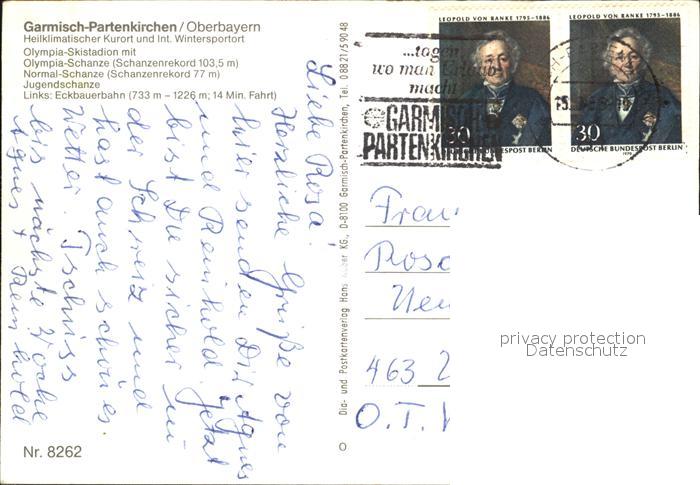 Garmisch-Partenkirchen / Oberbayern
Heilklimatischer Kurort und Int. Wintersportort
Olympia-Skistadion mit
Olympia-Schanze (Schanzenrekord 103,5 m)
Normal-Schanze (Schanzenrekord 77 m)
Jugendschanze
Links: Eckbauerbahn (733 m – 1226 m; 14 Min. Fahrt)
Liebe Rosa!
Herzliche Grüße von
hier senden Dir Agnes
und Reinhold. Jetzt
bist Du sicher in
der Schweiz und
hast auch schönes
Wetter. Tschüss
bis nächste Woche
Agnes + Reinhold
Nr. 8262
Dia- und Postkartenverlag Hans Huber KG., D-8100 Garmisch-Partenkirchen, Tel. 0 88 21/5 90 48
LEOPOLD VON RANKE 1795-1886
30
POST BERLIN
LEOPOLD VON RANKE 1795-1886
30
DEUTSCHE BUNDESPOST BERLIN
1970
...tagen
wo man Urlaub
macht
GARMISCH-
PARTENKIRCHEN
Frau
Rosa
463 2
O.T.
privacy protection
Datenschutz